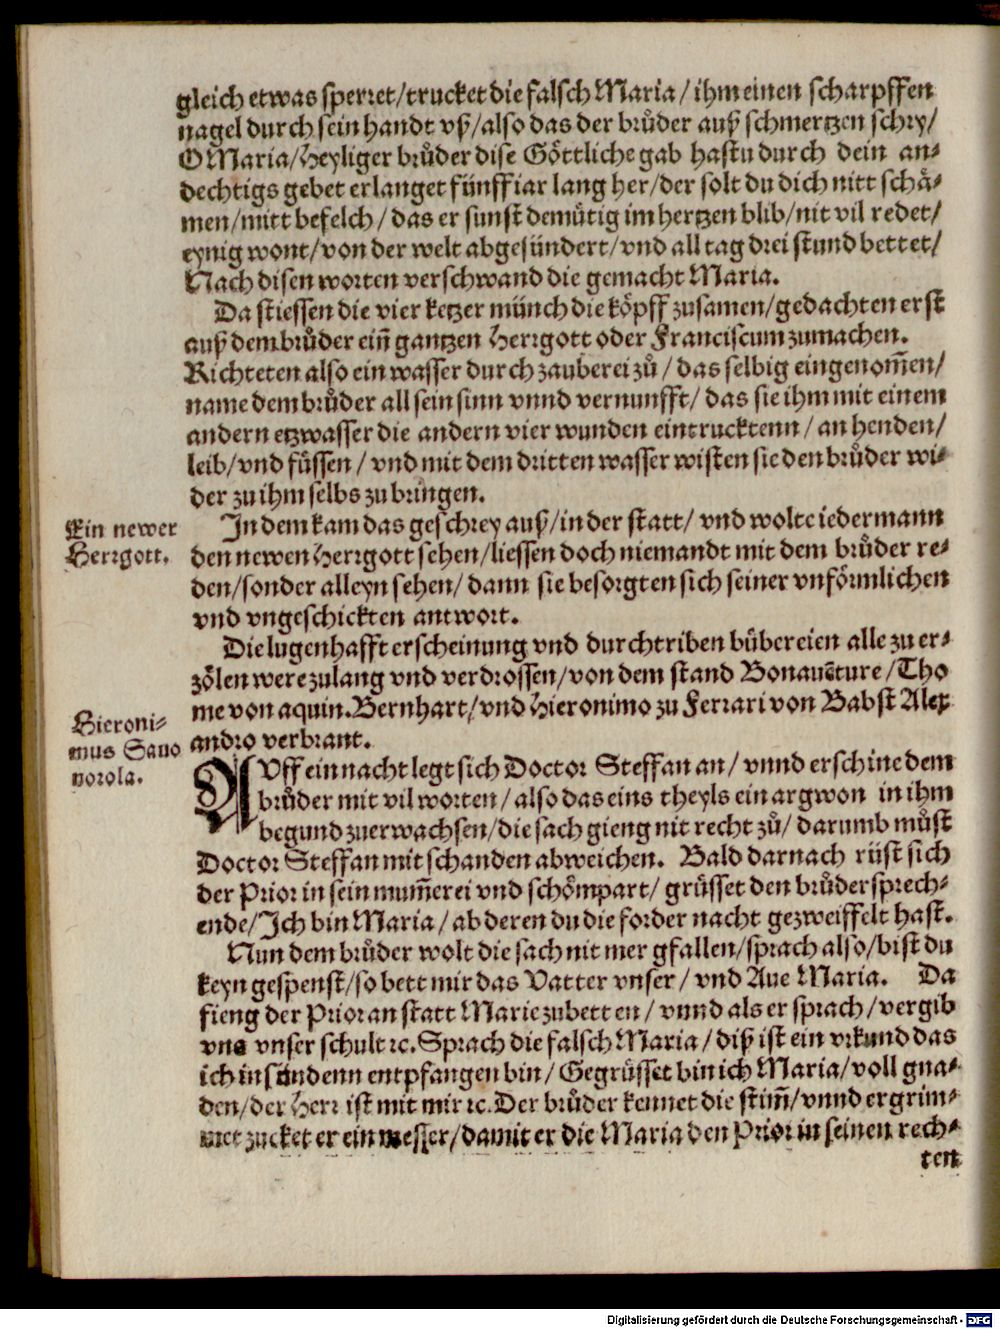 gleich etwas sperret/trucket die falsch Maria/ ihm einen scharpffen
nagel durch sein handt vß/also das der brůder auß schmertzen schry/
O Maria/Heyliger brůder dise Göttliche gab hastu durch dein an⸗
dechtigs gebet erlanget fünff iar lang her/der solt du dich nitt schä⸗
men/mitt befelch/ das er sunst demütig im hertzen blib/nit vil redet/
eynig wont/von der welt abgesündert/vnd all tag drei stund bettet/
Nach disen worten verschwand die gemacht Maria.
Da stiessen die vier ketzer münch die köpff zusamen/gedachten erst
auß dem brůder ein̄ gantzen Herrgott oder Franciscum zumachen.
Richteten also ein wasser durch zauberei zů/ das selbig eingenom̄en/
name dem brůder all sein sinn vnnd vernunfft/ das sie ihm mit einem
andern etzwasser die andern vier wunden eintrucktenn/ an henden/
leib/vnd füssen/ vnd mit dem dritten wasser wisten sie den brůder wi⸗
der zu ihm selbs zu bringen.
Ein newer
Herrgott.
In dem kam das geschrey auß/in der statt/ vnd wolte iedermann
den newen Herrgott sehen/liessen doch niemandt mit dem brůder re⸗
den/sonder alleyn sehen/ dann sie besorgten sich seiner vnförmlichen
vnd vngeschickten antwort.
Die lugenhafft erscheinung vnd durchtriben bübereien alle zu er⸗
zölen were zulang vnd verdrossen/von dem stand Bonauēture/Tho
me von aquin.Bernhart/vnd Hieronimo zu Ferrari von Babst Alex
andro verbrant.
Hieroni⸗
mus Sauo
norola.
AVff ein nacht legt sich Doctor Steffan an/ vnnd erschine dem
brůder mit vil worten/ also das eins theyls ein argwon in ihm
begund zuerwachsen/die sach gieng nit recht zů/ darumb můst
Doctor Steffan mit schanden abweichen. Bald darnach rüst sich
der Prior in sein mum̄erei vnd schömpart/ grüsset den brůder sprech⸗
ende/Ich bin Maria/ ab deren du die forder nacht gezweiffelt hast.
Nun dem brůder wolt die sach nit mer gfallen/sprach also/bist du
keyn gespenst/so bett mir das Vatter vnser/ vnd Aue Maria. Da
fieng der Prior an statt Marie zubetten/ vnnd als er sprach/vergib
vns vnser schult ꝛc.Sprach die falsch Maria/ diß ist ein vrkund das
ich in sündenn entpfangen bin/ Gegrüsset bin ich Maria/voll gna⸗
den/der Herr ist mit mir ꝛc.Der brůder kennet die stim̄/vnnd ergrim⸗
met zucket er ein messer/damit er die Maria den Prior in seinen rech⸗
ten
Digitalisierung gefördert durch die Deutsche Forschungsgemeinschaft - DFG